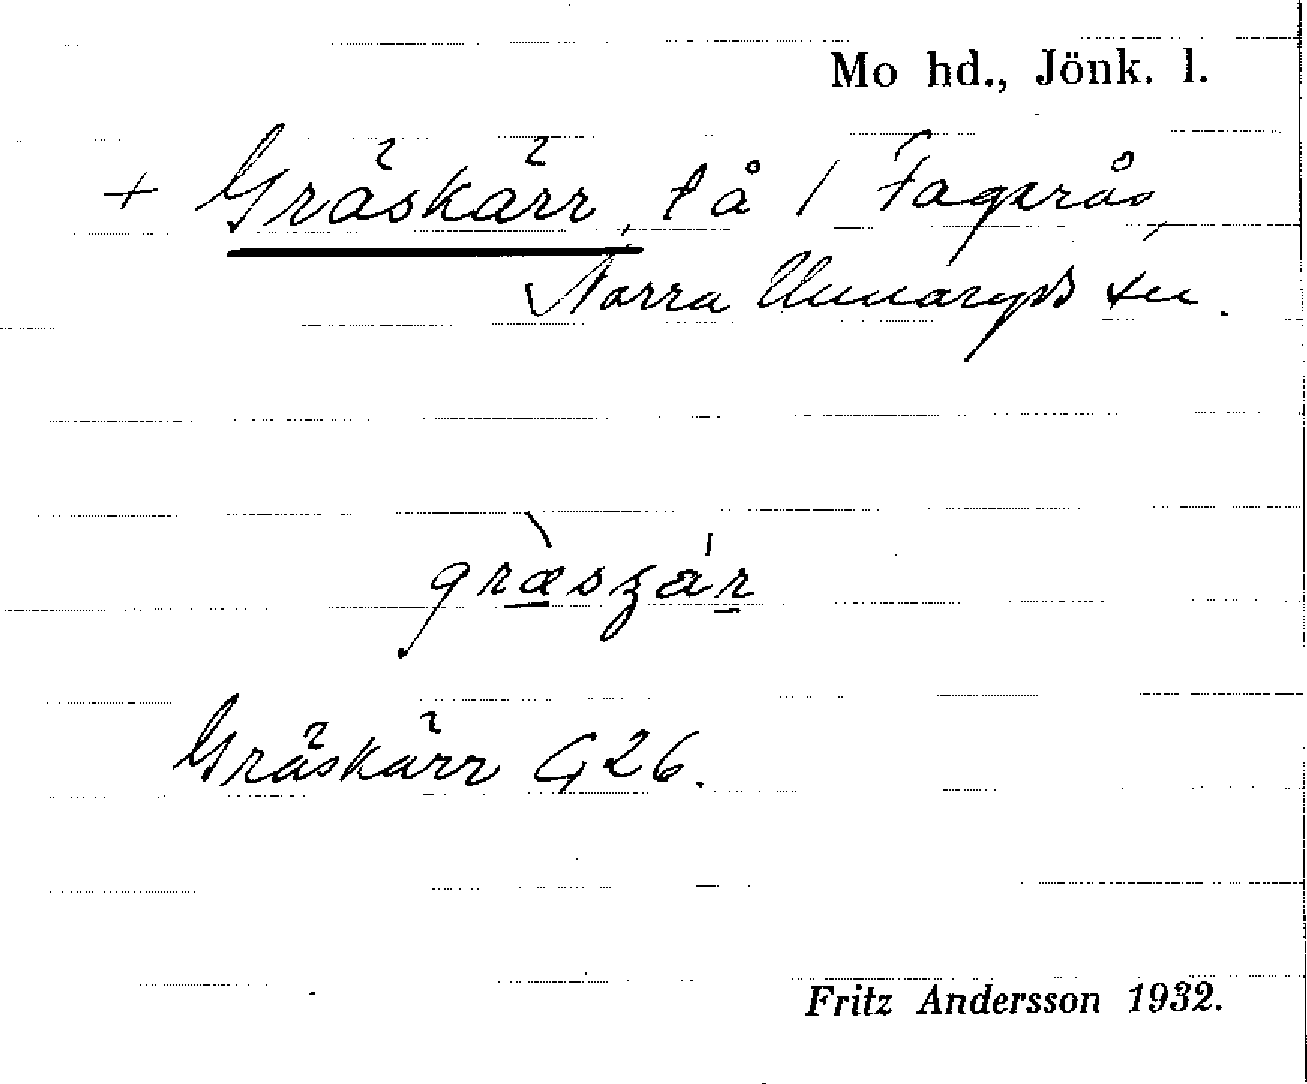 Mo hd., Jönk. l.
+ Gräskärr, lå / Fagerås,
Norra Unnaryds sn.
græsʒar
Gräskärr G 26.
Fritz Andersson 1932.